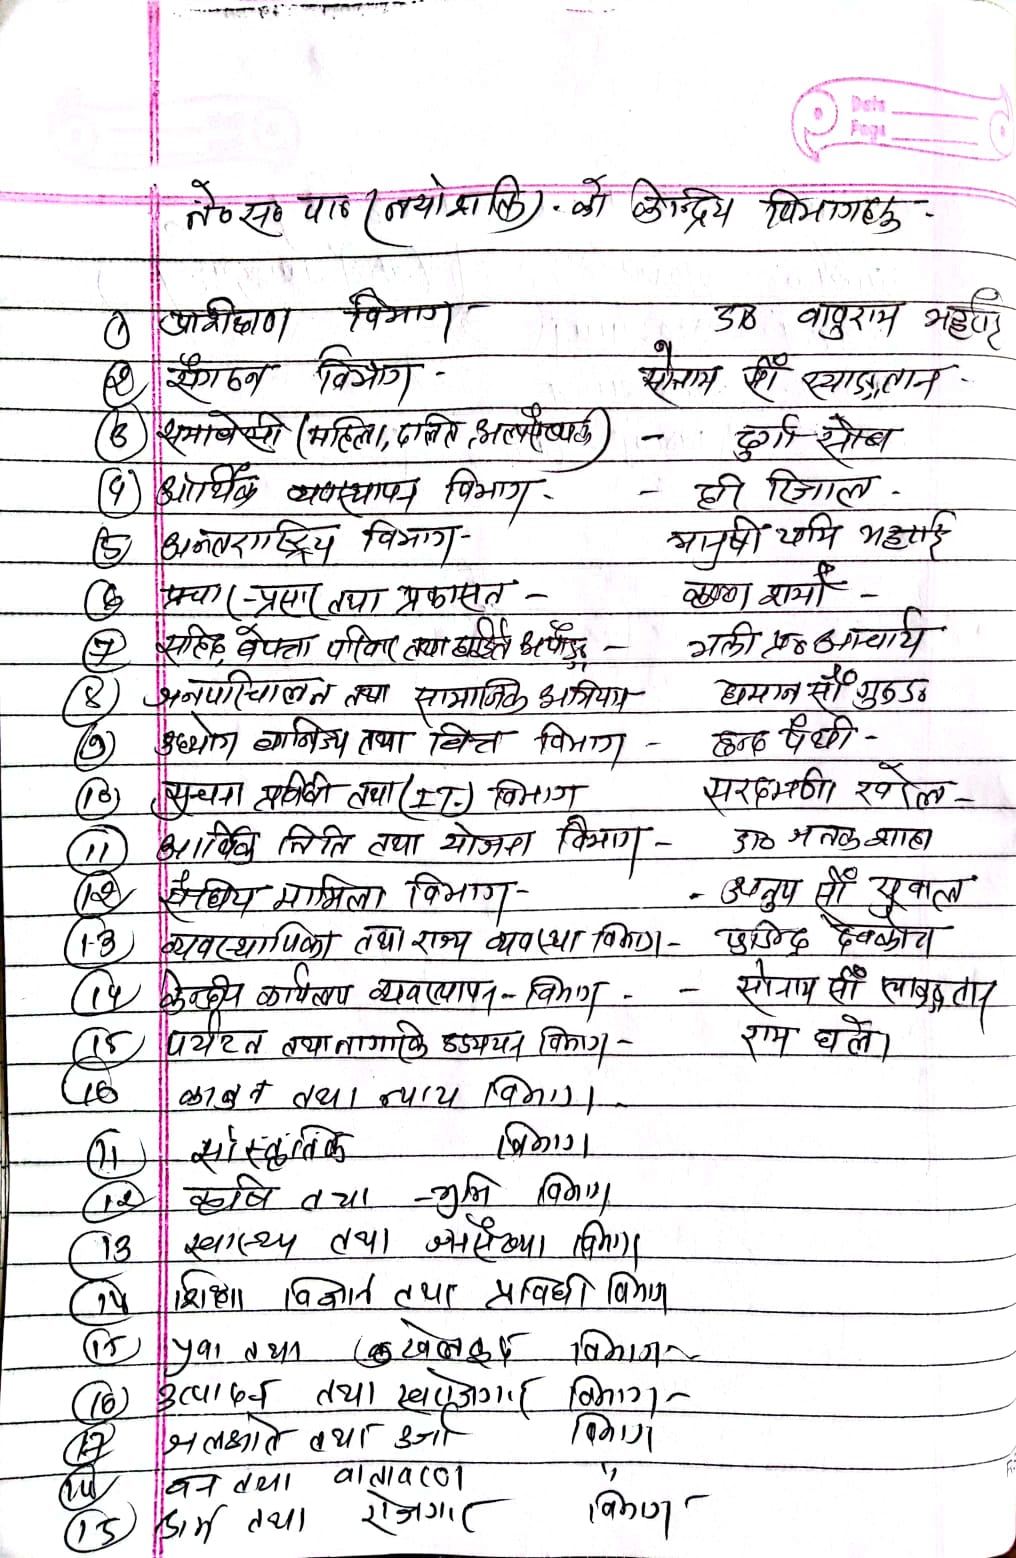 Date
Page
ने०स० पा० (नयाँशक्ति). को केन्द्रिय विभागहरु -
१ प्रशिक्षण विभाग - डा० बाबुराम भट्टराई
२ संगठन विभाग - सोनाम साँ स्याङतान -
३ समावेसी (महिला, दलित, अल्पसंख्यक) - दुर्गा सोब
४ आर्थिक व्यवस्थापन विभाग - - हरि रिजाल -
5 अन्तराष्ट्रिय विभाग - मानुषी यमि भट्टराई
6 प्रचार-प्रसार तथा प्रकासन - कृष्ण शर्मा -
7 सहिद, बेपत्ता परिवार तथा - प्र० आचार्य
8 जनपरिचालन तथा सामाजिक अभियान साँ गुरुङ
9 उध्योग बानिज्य तथा वित्त विभाग -
10 सुचना प्रविधि तथा (I.T.) विभाग खरेल -
11 आर्थिक निति तथा योजना विभाग - डा० जनक शाहा
12 संघीय मामिला विभाग - - अनुप साँ सुवाल
13 व्यवस्थापिका तथा राज्य व्यवस्था विभाग - देवकोटा
14 केन्द्रीय कार्यलय व्यवस्थापन - विभाग - - सोनाम साँ स्याङतान
15 पर्यटन तथा नागरिक उड्डयन विभाग - राम घले।
16 कानुन तथा न्याय विभाग।
11 सांस्कृतिक विभाग
12 कृषि तथा भुमि विभाग
13 स्वास्थ्य तथा जनसंख्या विभाग
14 शिक्षा विज्ञान तथा प्रविधी विभाग
15 युवा तथा खेलकुद विभाग -
16 उत्पादन तथा स्वरोजगार विभाग -
17 जलस्रोत तथा उर्जा विभाग
14 वन तथा वातावरण "
15 श्रम तथा रोजगार विभाग -